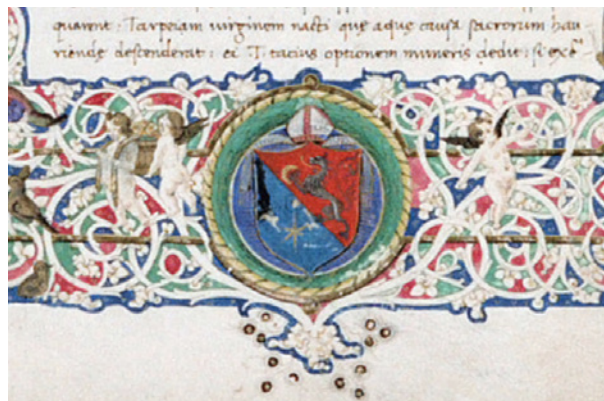 quarent: Tarpeiam uirginem nacti que aque causa sacrorum hau
riende descenderat: ei T. tatius optionem muneris dedit: si exẽ